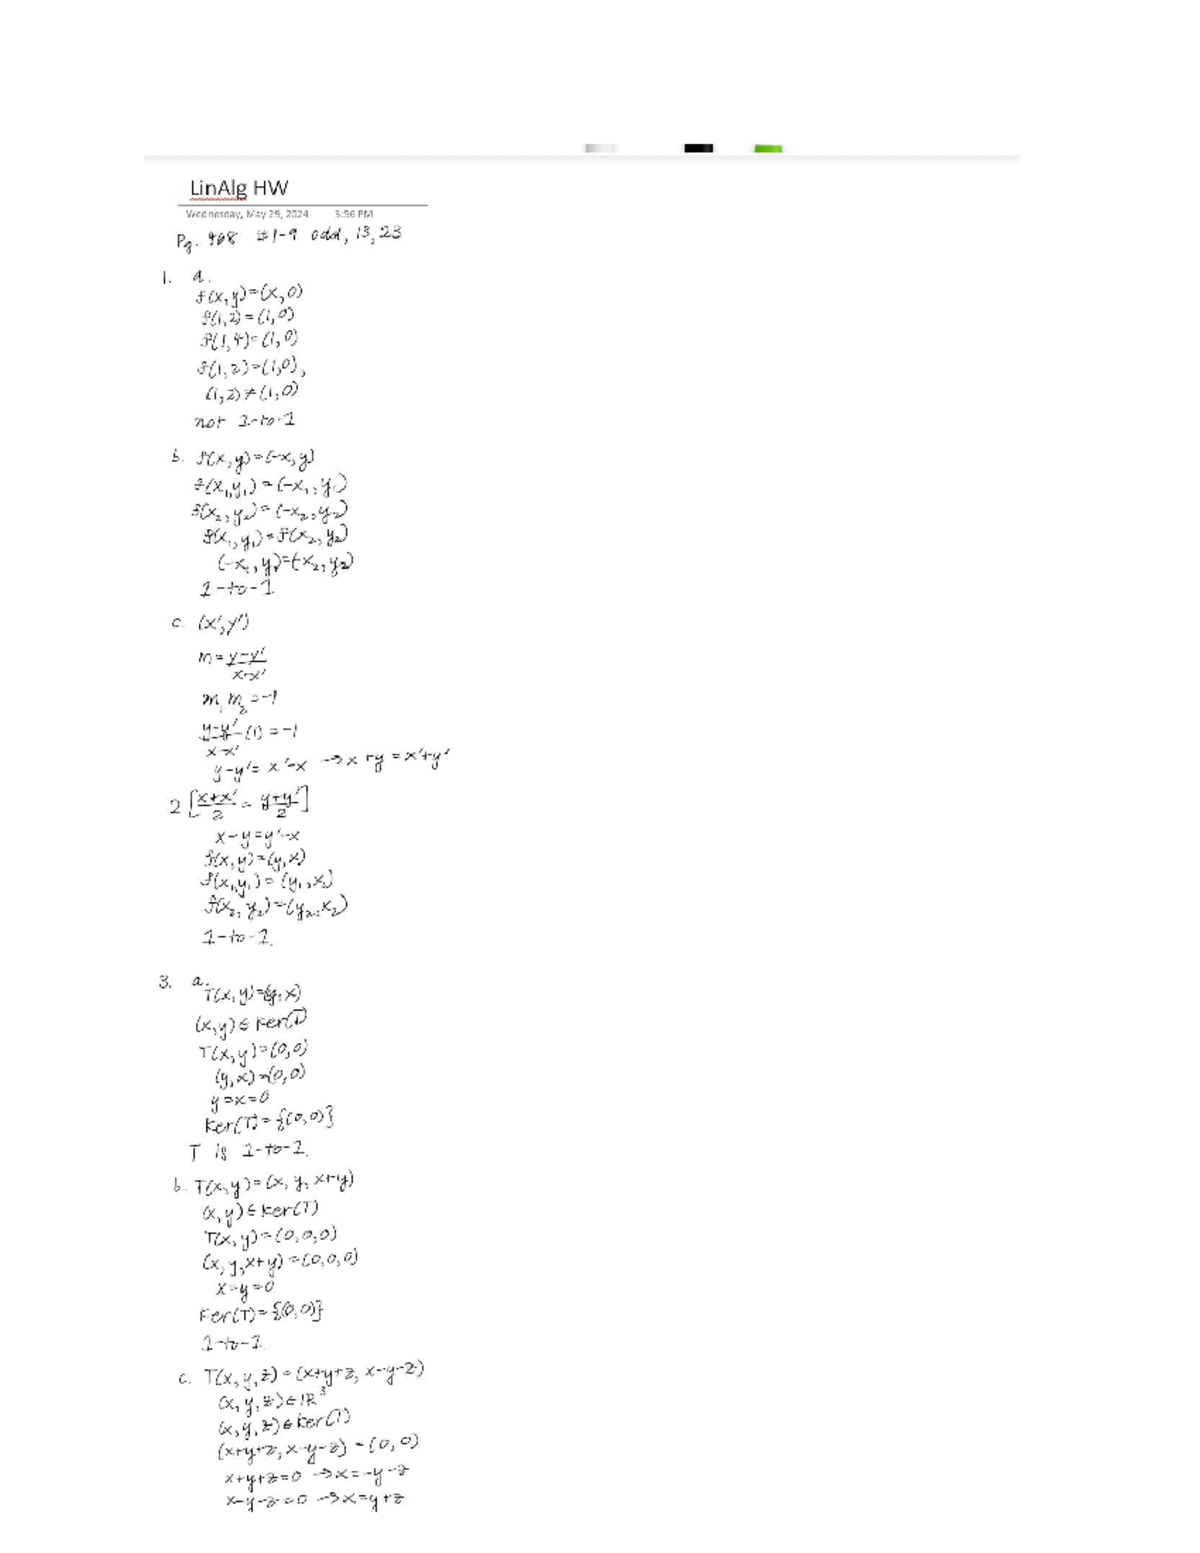 LinAlg HW
Wednesday, May 29, 2024 3:56 PM
Pg. 468 #1-9 odd, 13, 23
1. a.
f(x,y)=(x,0)
f(1,2)=(1,0)
f(1,4)=(1,0)
f(1,2)=(1,0),
(1,2)≠(1,0)
not 1-to-1
b. f(x,y)=(-x,y)
f(x₁,y₁)=(-x₁,y₁)
f(x₂,y₂)=(-x₂,y₂)
f(x₁,y₁)=f(x₂,y₂)
(-x₁,y₁)=(-x₂,y₂)
1-to-1
c. (x',y')
m = (y-y')/(x-x')
m₁m₂=-1
(y-y')/(x-x') (1) = -1
y-y'= x'-x → x+y = x'+y'
2[(x+x')/2 = (y+y')/2]
x-y=y'-x
f(x,y)=(y,x)
f(x₁,y₁)=(y₁,x₁)
f(x₂,y₂)=(y₂,x₂)
1-to-1.
3. a.
T(x,y)=(y,x)
(x,y)∈Ker(T)
T(x,y)=(0,0)
(y,x)=(0,0)
y=x=0
Ker(T)={(0,0)}
T is 1-to-1.
b. T(x,y)=(x,y,x+y)
(x,y)∈Ker(T)
T(x,y)=(0,0,0)
(x,y,x+y)=(0,0,0)
x=y=0
Ker(T)={(0,0)}
1-to-1
c. T(x,y,z)=(x+y+z, x-y-z)
(x,y,z)∈ℝ³
(x,y,z)∈Ker(T)
(x+y+z, x-y-z) = (0,0)
x+y+z=0 → x=-y-z
x-y-z=0 → x=y+z